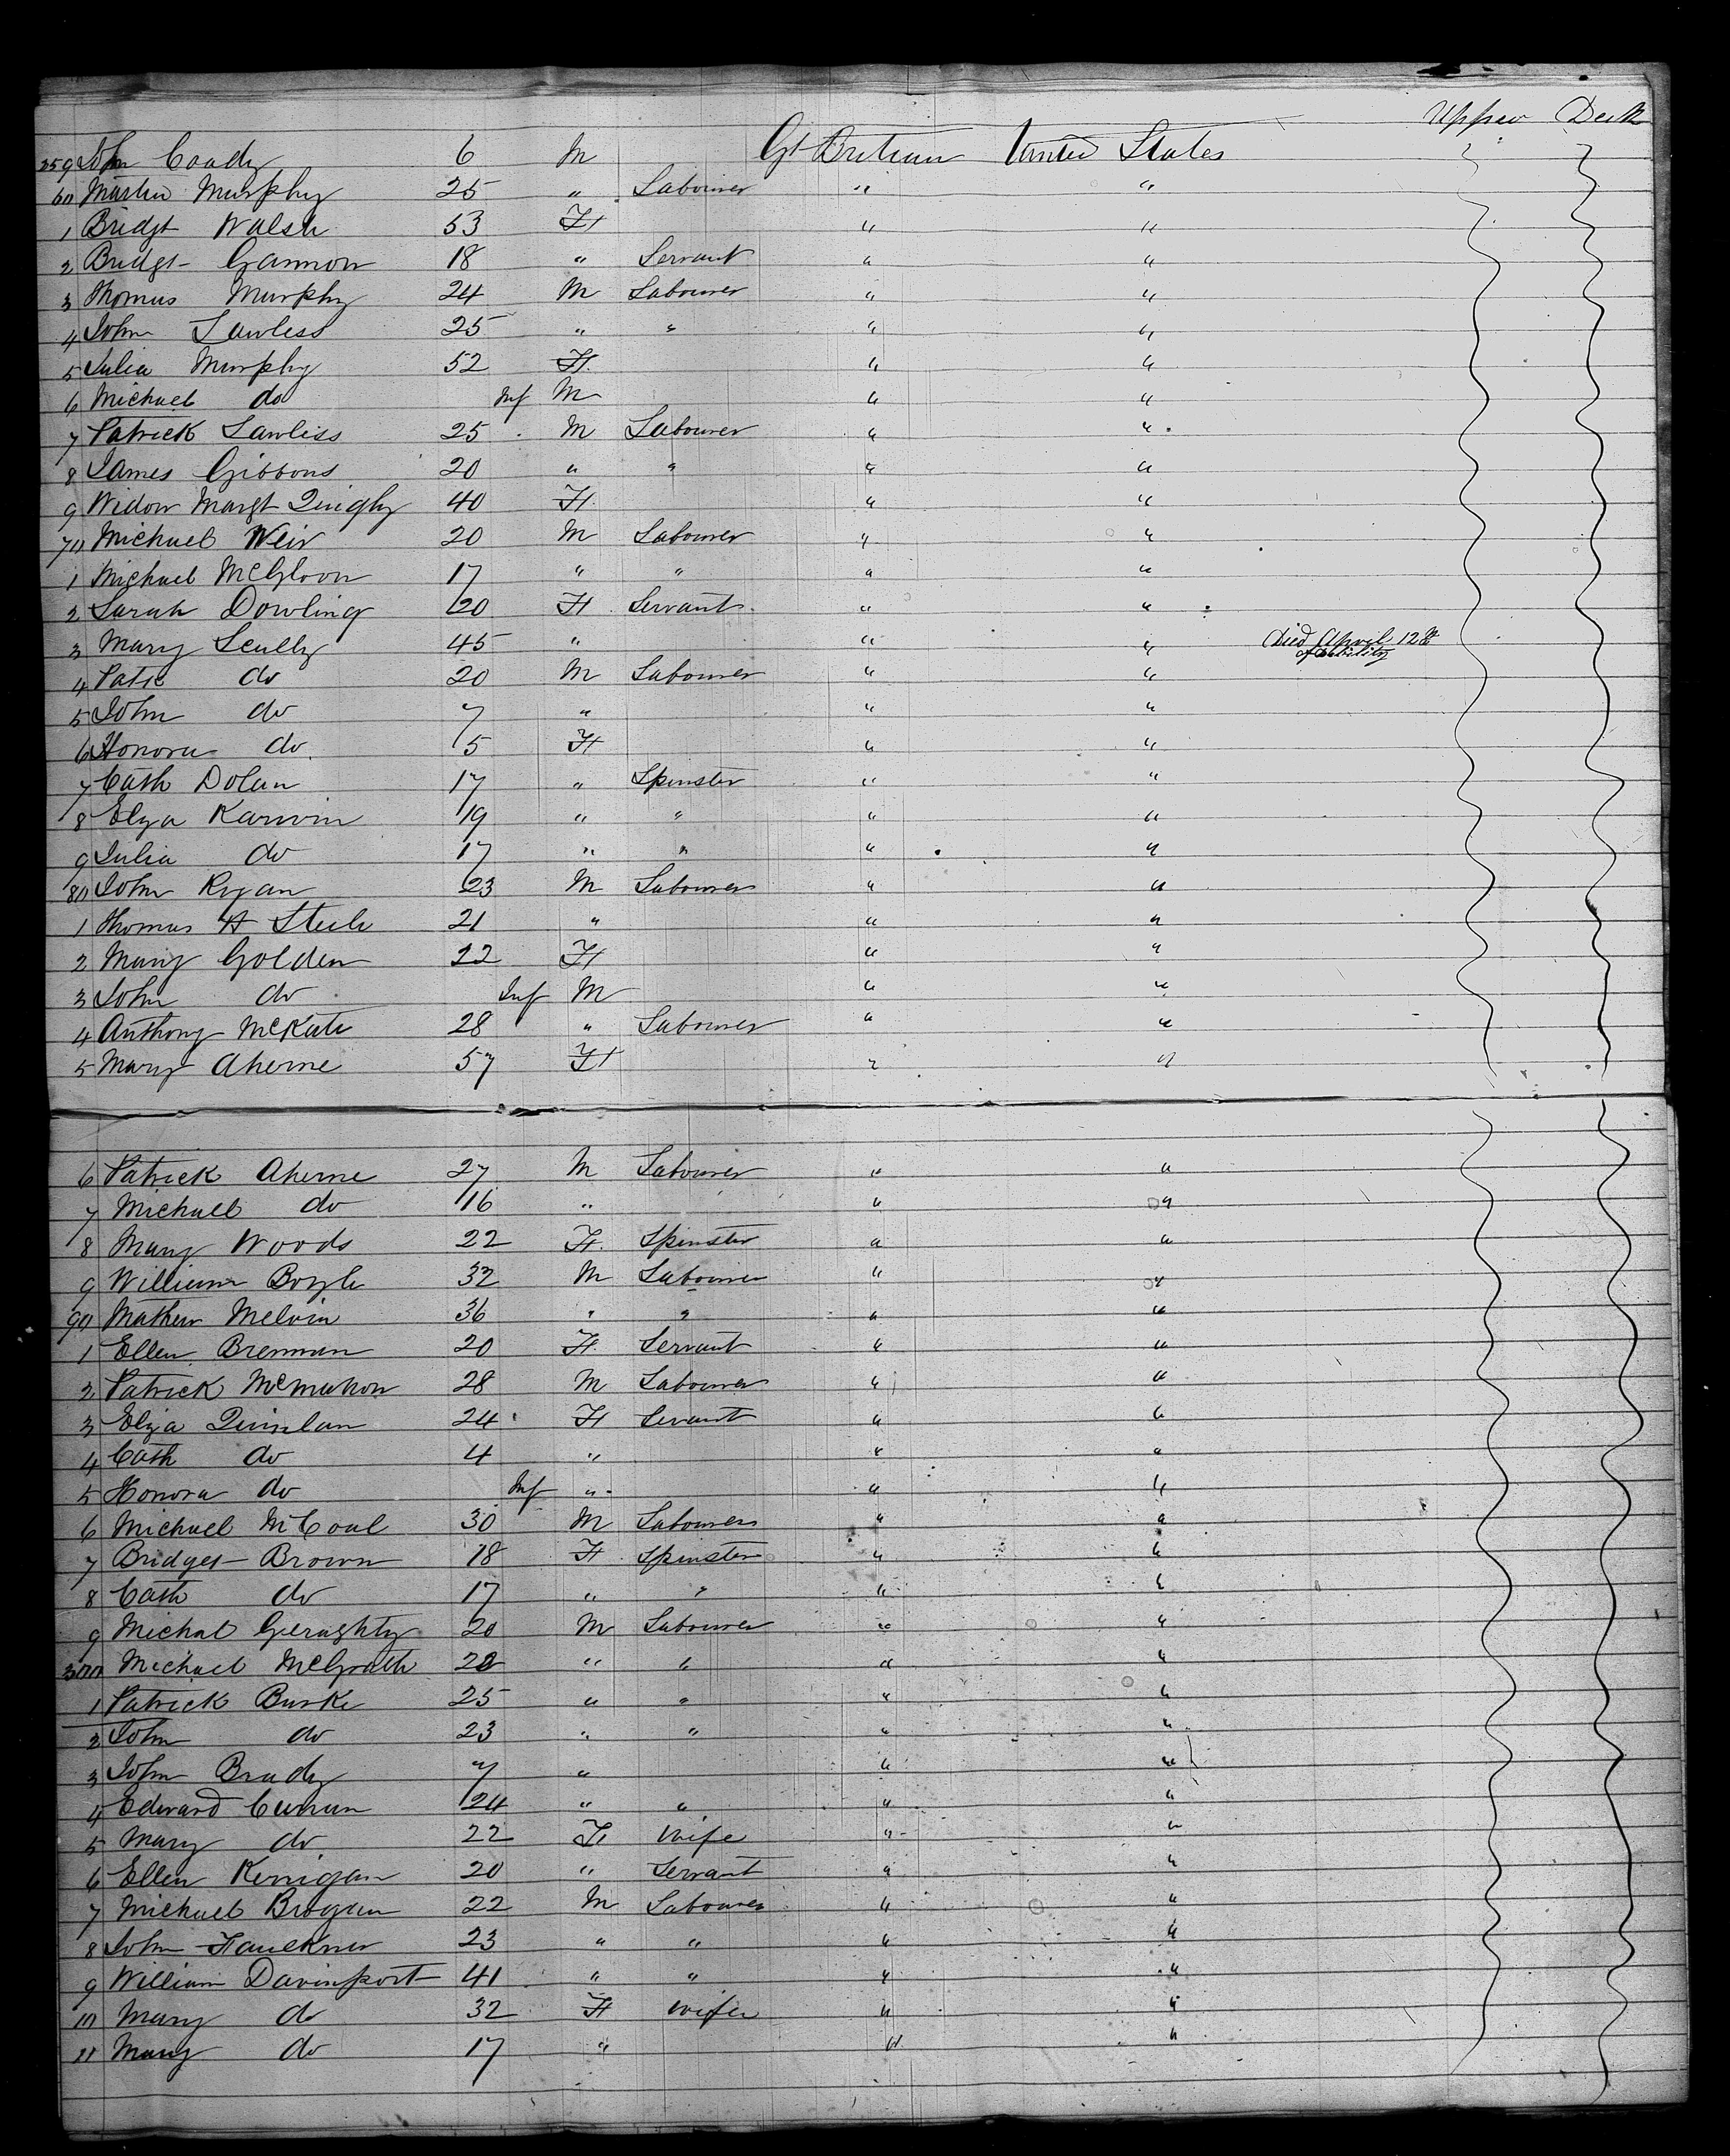 Upper Deck
259 John Coady 6 M Gt Britain United States
60 Martin Murphy 25 " Labourer " "
1 Bridgt Walsh 53 F " "
2 Bridgt Gannon 18 " Servant " "
3 Thomas Murphy 24 M Labourer " "
4 John Lawless 25 " " " "
5 Julia Murphy 52 F " "
6 Michael do Inf M " "
7 Patrick Lawliss 25 M Labourer " "
8 James Gibbons 20 " " " "
9 Widow Margt Quigly 40 F " "
70 Michael Weir 20 M Labourer " "
1 Michael McGloon 17 " " " "
2 Sarah Dowling 20 F Servant " "
3 Mary Scully 45 " " " Died April 12th of debility
4 Patk do 20 M Labourer " "
5 John do 7 " " "
6 Honora do 5 F " "
7 Cath Dolan 17 " Spinster " "
8 Elza Karivin 19 " " " "
9 Julia do 17 " " " "
80 John Ryan 23 M Labourer " "
1 Thomas H Steele 21 " " "
2 Mary Golden 22 F " "
3 John do Inf M " "
4 Anthony McKate 28 " Labourer " "
5 Mary Aherne 57 F " "
6 Patrick Aherne 27 M Labourer " "
7 Michael do 16 " " "
8 Mary Woods 22 F Spinster " "
9 William Boyle 32 M Labourer " "
90 Mathew Melvin 36 " " " "
1 Ellen Brennan 20 F Servant " "
2 Patrick McMahon 28 M Labourer " "
3 Eliza Quinlan 24 F Servant " "
4 Cath do 4 " " "
5 Honora do Inf " " "
6 Michael McCoul 30 M Labourer " "
7 Bridget Brown 18 F Spinster " "
8 Cath do 17 " " " "
9 Michal Geraghty 20 M Labourer " "
300 Michael McGrath 22 " " " "
1 Patrick Burke 25 " " " "
2 John do 23 " " " "
3 John Brady 7 " " "
4 Edward Curran 24 " " " "
5 Mary do 22 F Wife " "
6 Ellen Kerrigan 20 " Servant " "
7 Michael Brogan 22 M Labourer " "
8 John Faulkner 23 " " " "
9 William Davinport 41 " " " "
10 Mary do 32 F Wife " "
11 Mary do 17 " " "